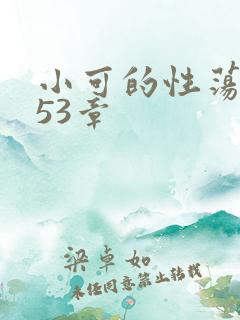 小可的性荡
53章
梁卓如
未经同意禁止转载